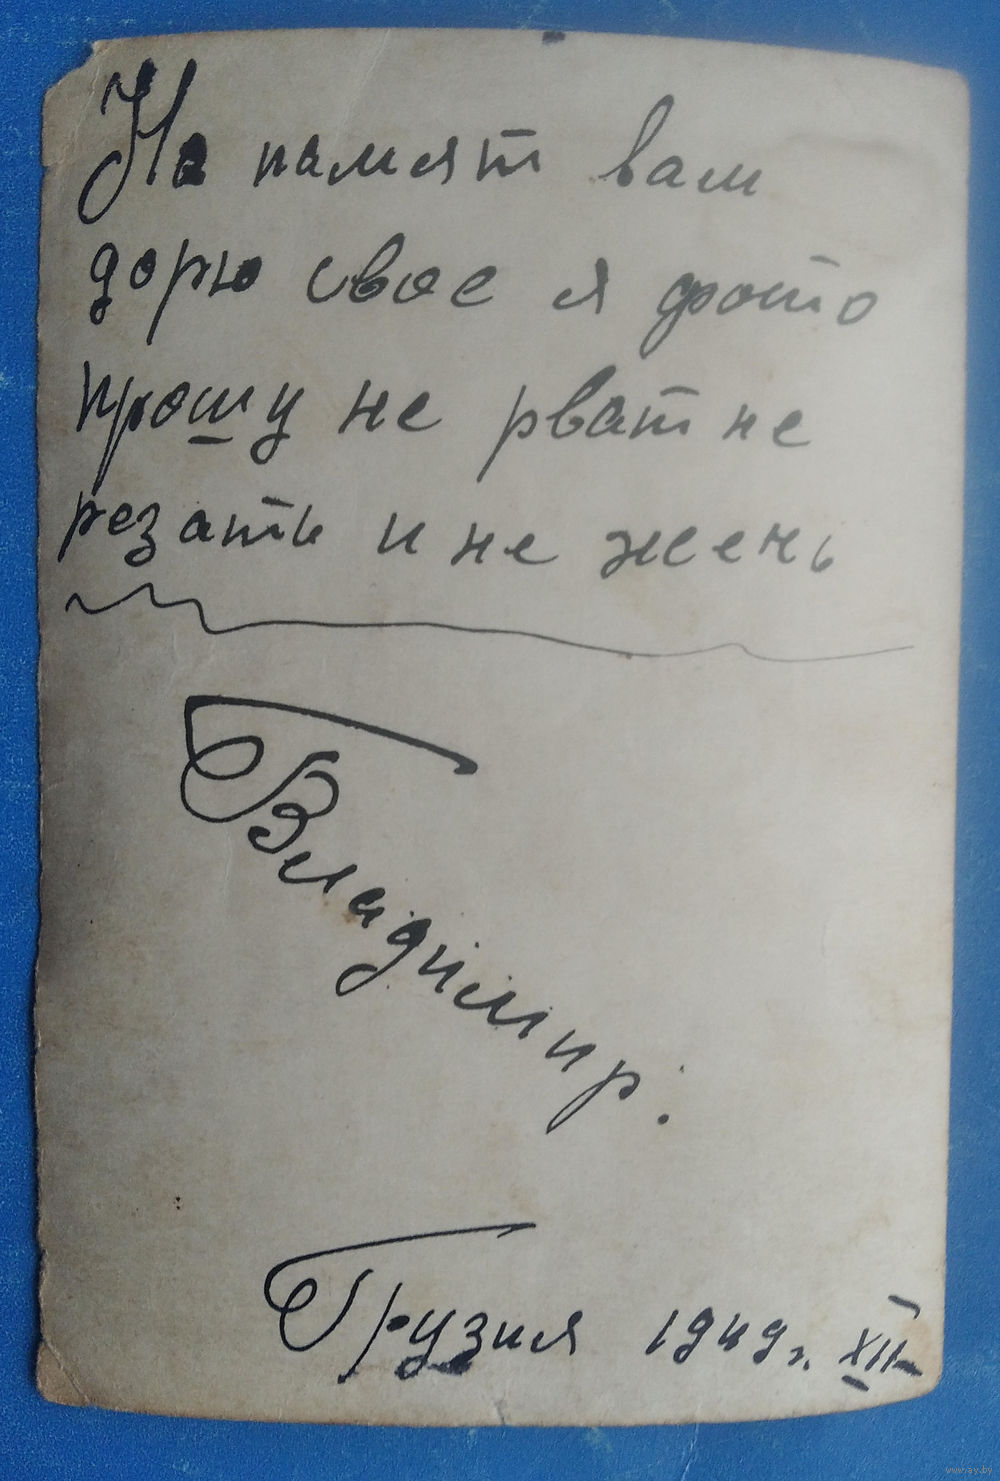 На памят вам
дорю свое я фото
прошу не рват не
резать и не жечь
Владимир.
Грузия 1949 г. XII
www.ay.by